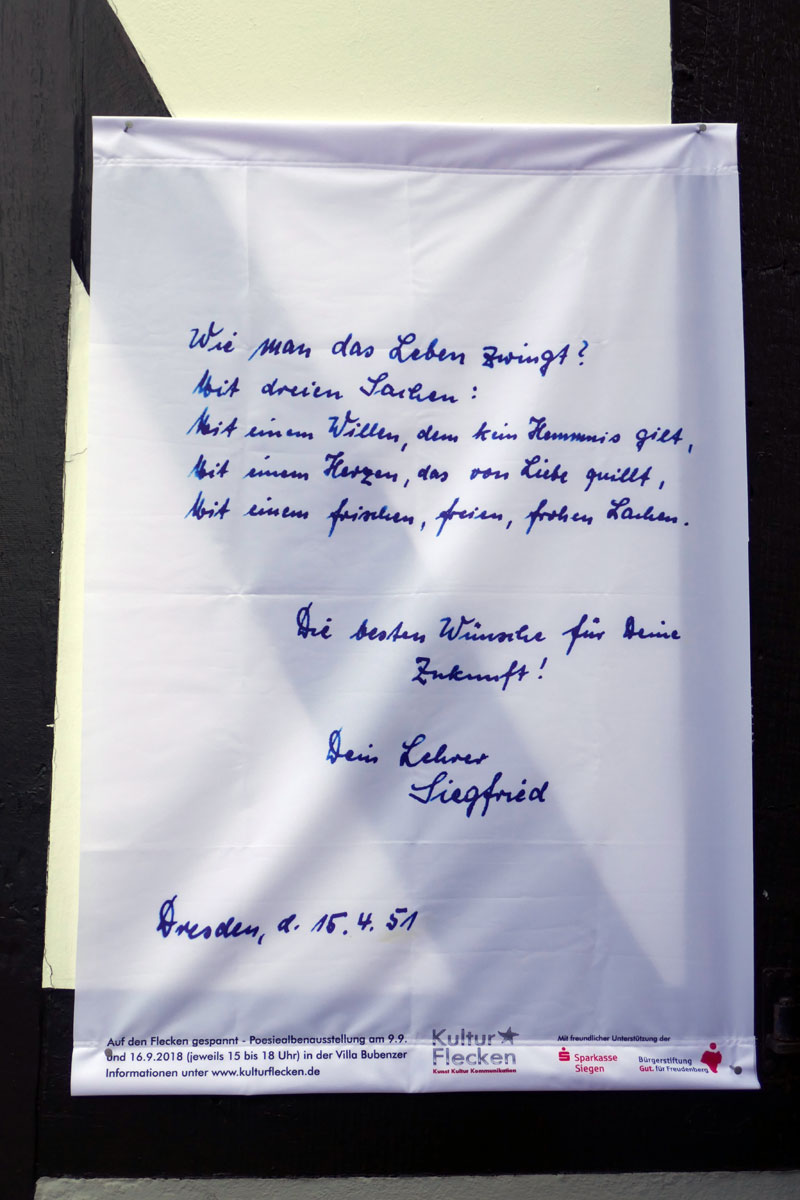 Wie man das Leben zwingt?
Mit dreien Sachen:
Mit einem Willen, dem kein Hemmnis gilt,
Mit einem Herzen, das von Liebe quillt,
Mit einem frischen, freien, frohen Lachen.
Die besten Wünsche für Deine
Zukunft!
Dein Lehrer
Siegfried
Dresden, d. 15. 4. 51
Auf den Flecken gespannt - Poesiealbenausstellung am 9.9.
und 16.9.2018 (jeweils 15 bis 18 Uhr) in der Villa Bubenzer
Informationen unter www.kulturflecken.de
Kultur
Flecken
Kunst Kultur Kommunikation
Mit freundlicher Unterstützung der
Sparkasse
Siegen
Bürgerstiftung
Gut. für Freudenberg